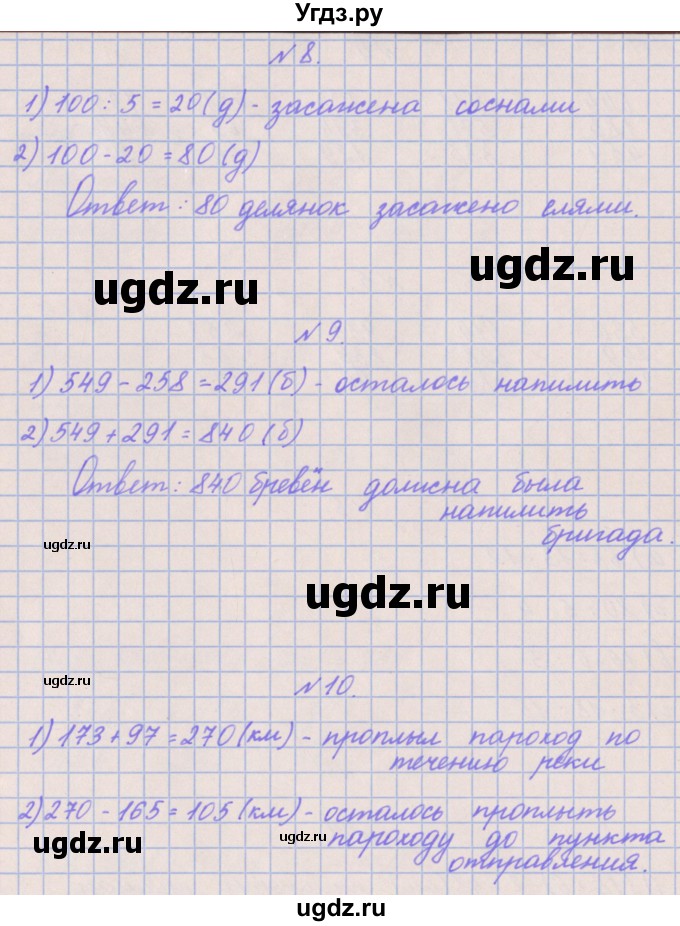 Угдз.ру
№8.
1) 100 : 5 = 20 (д) - засажена соснами
2) 100 - 20 = 80 (д)
Ответ: 80 делянок засажено елями.
ugdz.ru
ugdz.ru
№9.
1) 549 - 258 = 291 (б) - осталось напилить
2) 549 + 291 = 840 (б)
Ответ: 840 бревён должна была
напилить
ugdz.ru
бригада.
ugdz.ru
ugdz.ru
№10.
1) 173 + 97 = 270 (км) - проплыл пароход по
течению реки
2) 270 - 165 = 105 (км) - осталось проплыть
ugdz.ru
ugdz.ru
пароходу до пункта
отправления.
ugdz.ru